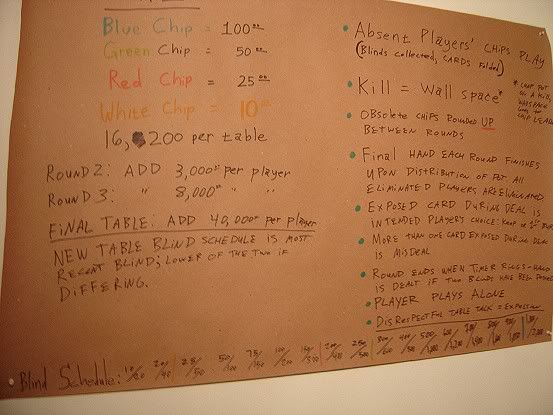 Blue Chip = 100.00
Green Chip = 50.00
Red Chip = 25.00
White Chip = 10.00
16,200 per table
Round 2: ADD 3,000.00 per player
Round 3: " 8,000.00 " "
Final Table: ADD 40,000.00 per player
New Table Blind Schedule is most
recent blind; lower of the two if
differing.
• Absent Players' Chips Play
(Blinds collected, cards folded)
• Kill = Wall space*
• Obsolete chips rounded UP
between rounds
• Final hand each round finishes
upon distribution of pot all
eliminated players are eliminated
• Exposed card during deal is
intended player's choice: keep or
• More than one card exposed during deal
is misdeal
• Round ends when timer rings - hand
is dealt if two blinds have been posted
• Player plays alone
• Disrespectful table talk = expulsion
Blind Schedule: 10/20 20/40 25/50 50/100 75/150 100/200 150/300 200/400 250/500 300/600 400/800 500/1000